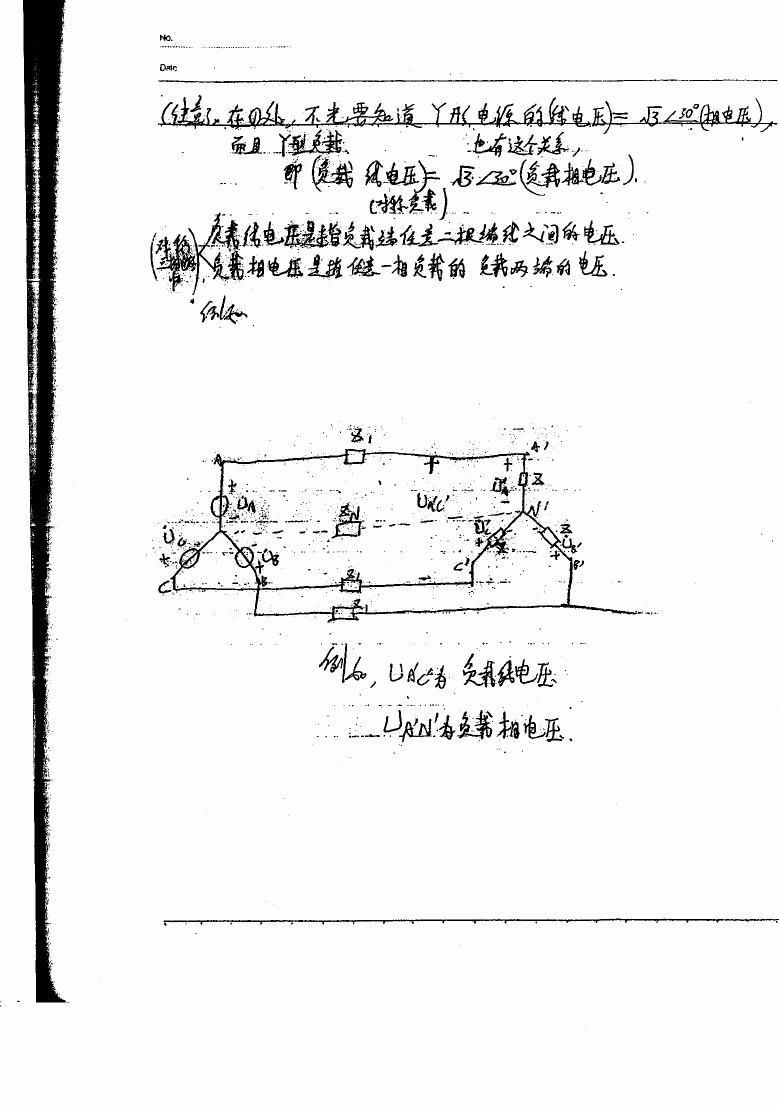 No.
Date
(注意). 在①处, 不光要知道 Y形电源的(线电压)= √3∠30°(相电压),
而且 Y型负载 也有这个关系,
即(负载 线电压)= √3∠30°(负载相电压).
(对称负载)
负载线电压是指负载端任意二根端线之间的电压.
负载相电压是指任意一相负载的 负载两端的电压.
(对称三相
例如
A Z1 A'
+ + +
UA UA'C' U̇A' Z
ZN N'
U̇C UB Z
C B C' UB' B'
Z1
Z1
例如, UA'C'为 负载线电压.
UA'N'为负载相电压.